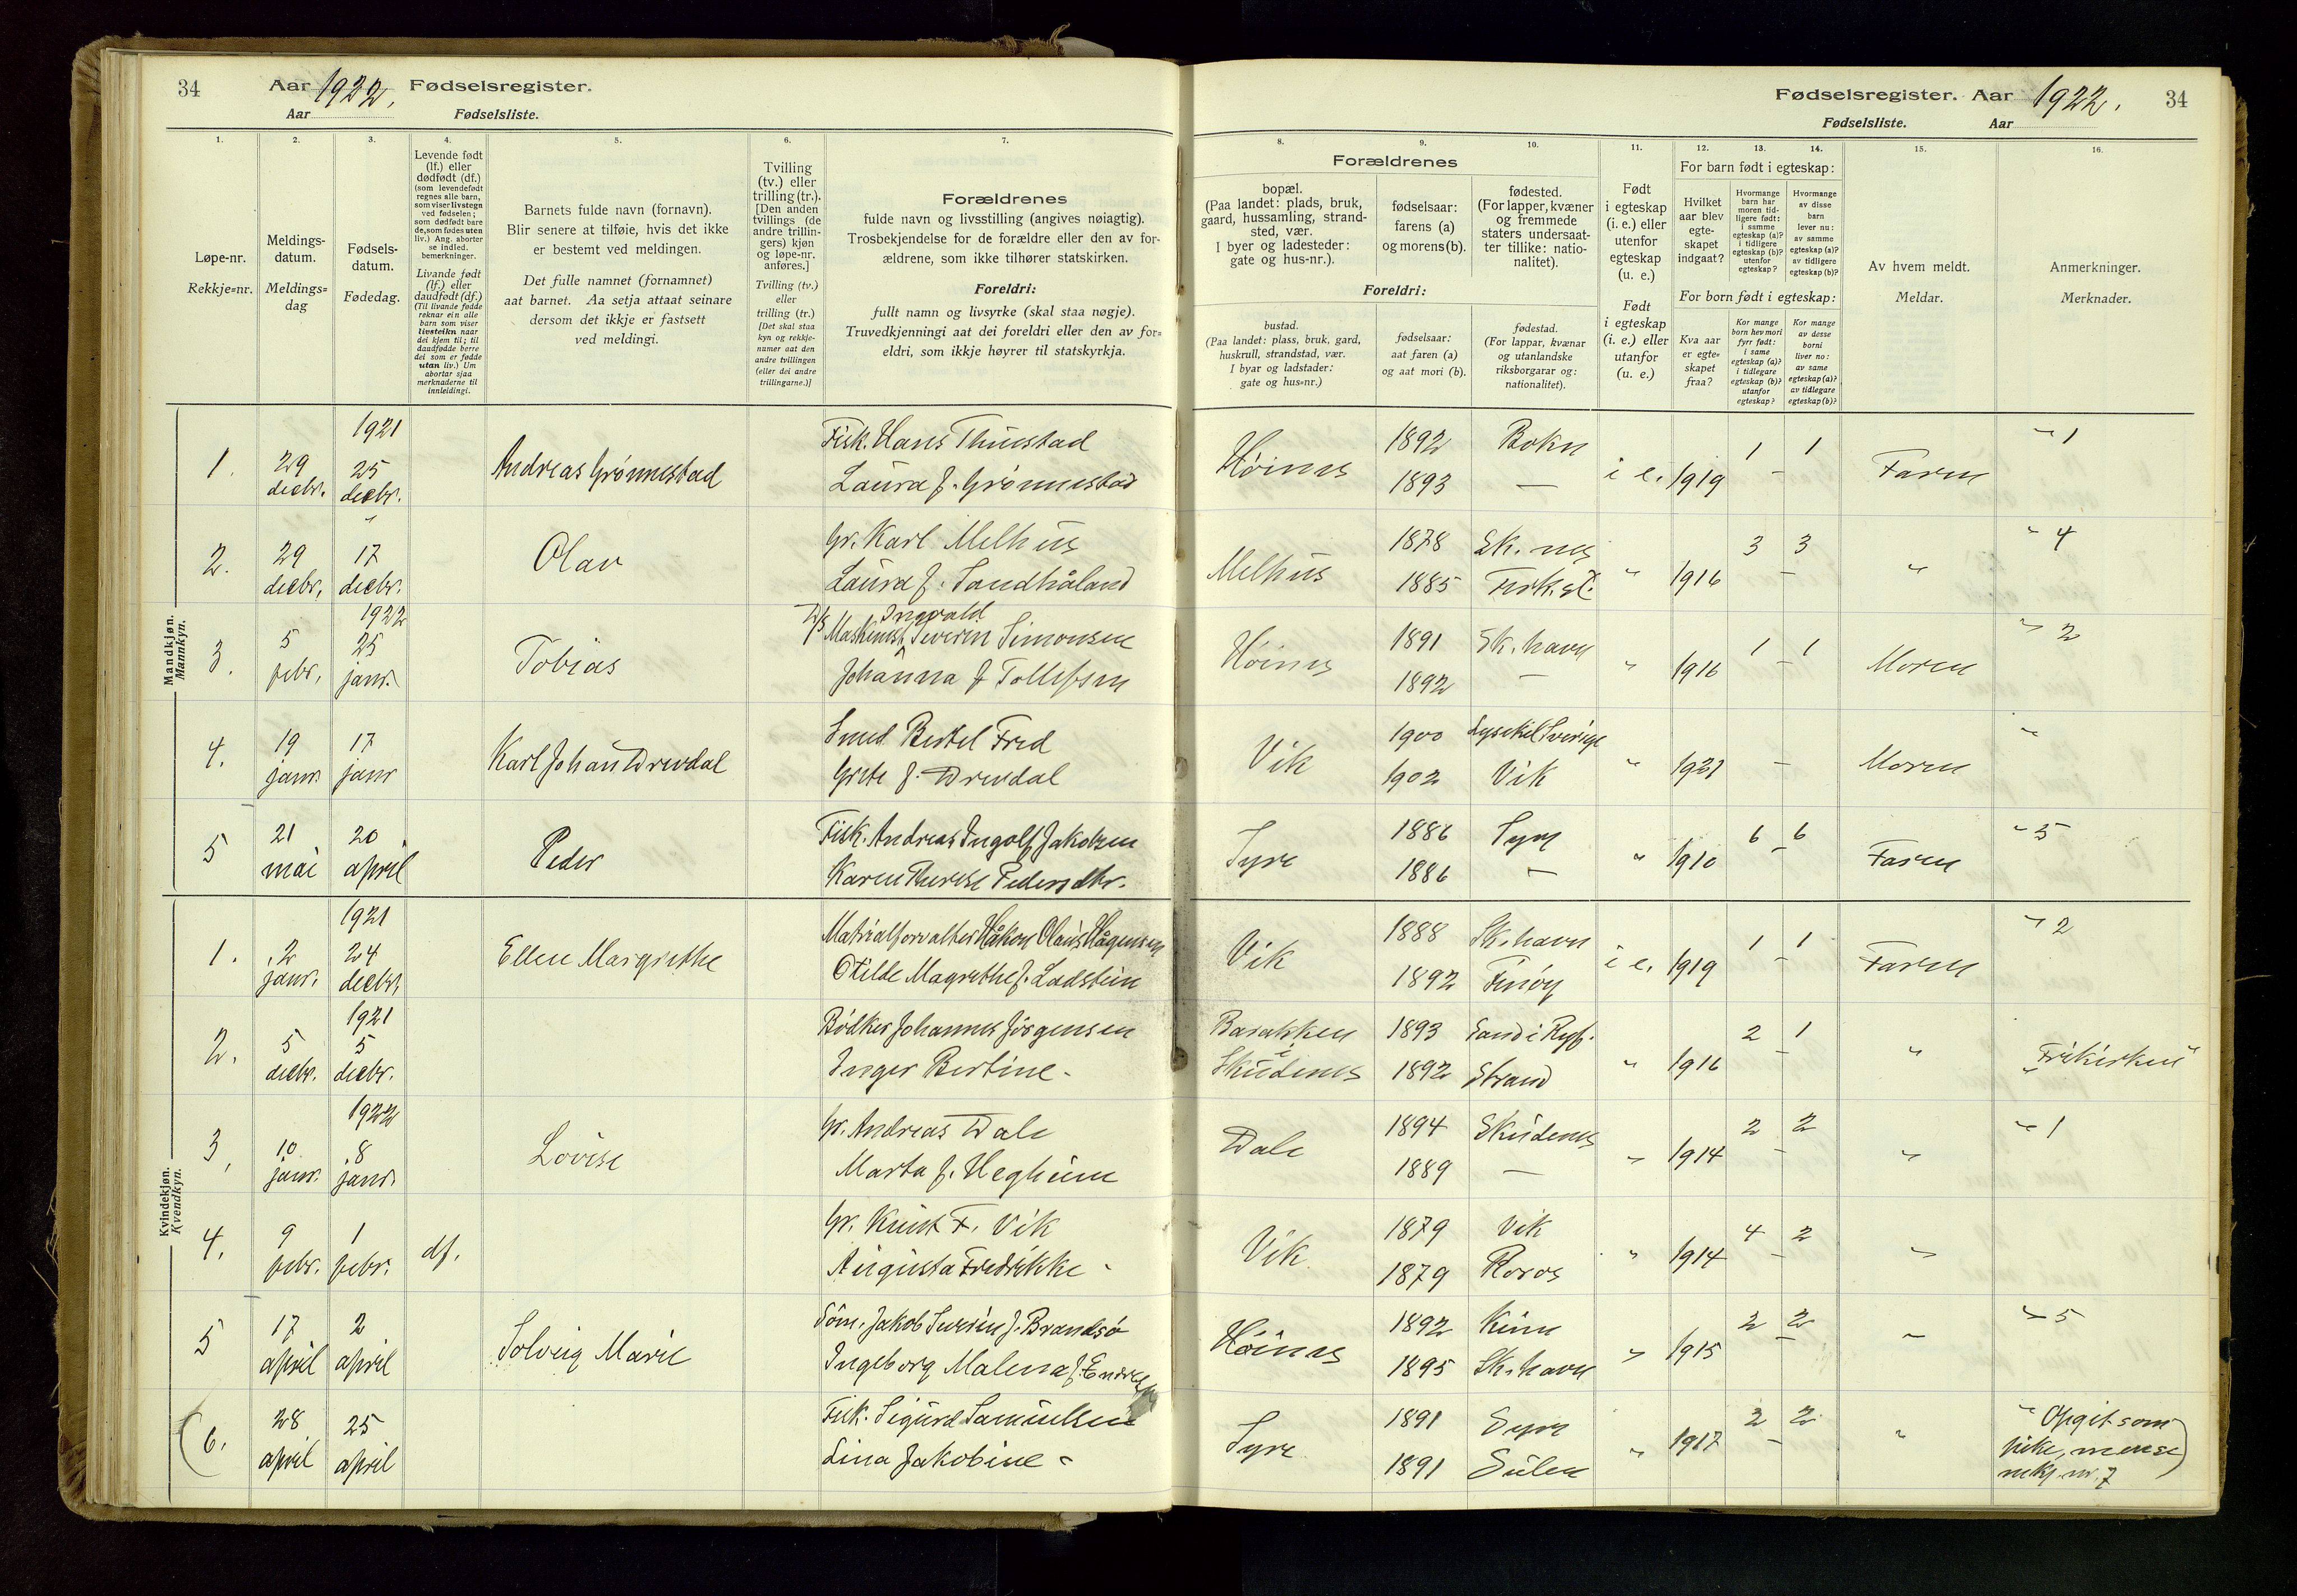 34
Aar 1922. Fødselsregister.
Aar Fødselsliste.
1.
2.
3.
4.
5.
6.
7.
Løpe-nr.
Rekkje=nr.
Meldings-
datum.
Meldings=
dag
Fødsels-
datum.
Fødedag.
Levende født
(lf.) eller
dødfødt (df.)
(som levendefødt
regnes alle barn,
som viser livstegn
ved fødselen;
som dødfødt bare
de, som fødes uten
liv.) Ang. aborter
se indled.
bemerkninger.
Livande født
(lf.) eller
daudfødt (df.)
(Til livande fødde
reknar ein alle
barn som viser
livsteikn naar
dei kjem til; til
daudfødde berre
dei som er fødde
utan liv.) Um
abortar sjaa
merknaderne til
innleidingi.
Barnets fulde navn (fornavn).
Blir senere at tilføie, hvis det ikke
er bestemt ved meldingen.
Det fulle namnet (fornamnet)
aat barnet. Aa setja attaat seinare
dersom det ikkje er fastsett
ved meldingi.
Tvilling
(tv.) eller
trilling (tr.).
[Den anden
tvillings (de
andre trillin-
gers) kjøn
og løpe-nr.
anføres.]
Tvilling (tv.)
eller
trilling (tr.)
[Det skal staa
kyn og rekkje-
numer aat den
andre tvillingen
(eller dei andre
trillingarne.)]
Forældrenes
fulde navn og livsstilling (angives nøiagtig).
Trosbekjendelse for de forældre eller den av for-
ældrene, som ikke tilhører statskirken.
Foreldri:
fullt namn og livsyrke (skal staa nøgje).
Truvedkjenningi aat dei foreldri eller den av for=
eldri, som ikkje høyrer til statskyrkja.
Mandkjøn.
Mannkyn.
1921
1. 29 decbr. 25 decbr. Andreas Grønnestad
Fisk. Hans Thuestad
Laura f. Grønnestad
2. 29 decbr. " 17 decbr. Olav
Gr. Karl Melhus
Laura f. Sandhåland
1922
3. 5 febr. 25 janr. Tobias
Ingvald
Maskinist Severin Simonsen
Johanna f Tollefsen
4. 19 janr. 17 janr Karl Johan Drevdal
Smed Bertel Fred
Grete f. Drevdal
5 21 mai 20 april Peder
Fisk. Andreas Ingolf Jakobsen
Karen Therese Pedersdtr.
Kvindekjøn.
Kvendkyn.
1921
1. 2 janr. 24 decbr. Ellen Margrethe
Materialforvalter Håkon Olaus Hågensen
Otilde Magrethe f. Ladstein
1921
2. 5 decbr. 5 decbr.
Bødker Johannes Jörgensen
Inger Bertine -
1922
3. 10 janr. 8 janr. Lovise
Gr. Andreas Dale
Marta f. Hegheim
4. 9 febr. 1 febr. df.
Gr. Knut F. Vik
Augusta Fredrikke -
5 17 april 2 april Solveig Marie
Söm. Jakob Severin J. Brandsö
Ingeborg Malena f. Endresen
(6. 28 april 25 april
Fisk. Sigurd Samuelsen
Lina Jakobine -
Fødselsregister. Aar 1922. 34
Fødselsliste. Aar
8.
9.
10.
11.
12.
13.
14.
15.
16.
Forældrenes
bopæl.
(Paa landet: plads, bruk,
gaard, hussamling, strand-
sted, vær.
I byer og ladesteder:
gate og hus-nr.).
fødselsaar:
farens (a)
og morens (b).
fødested.
(For lapper, kvæner
og fremmede
staters undersaat-
ter tillike: natio-
nalitet).
Foreldri:
bustad.
(Paa landet: plass, bruk, gard,
huskrull, strandstad, vær.
I byar og ladstader:
gate og hus=nr.)
fødselsaar:
aat faren (a)
og aat mori (b).
fødestad.
(For lappar, kvænar
og utanlandske
riksborgarar og:
nationalitet).
Født
i egteskap
(i. e.) eller
utenfor
egteskap
(u. e.)
Født
i egteskap
(i. e.) eller
utanfor
(u. e.)
For barn født i egteskap:
Hvilket
aar blev
egte-
skapet
indgaat?
Hvormange
barn har
moren tid-
ligere født:
i samme
egteskap (a)?
i tidligere
egteskap (b)?
utenfor
egteskap?
Hvormange
av disse
barn
lever nu:
av samme
egteskap (a)?
av tidligere
egteskap (b)?
For born født i egteskap:
Kva aar
er egte=
skapet
fraa?
Kor mange
born hev mori
fyrr født:
i same
egteskap (a)?
i tidlegare
egteskap (b)?
utanfor
egteskap?
Kor mange
av desse
borni
liver no:
av same
egteskap (a)?
av tidlegare
egteskap (b)?
Av hvem meldt.
Meldar.
Anmerkninger.
Merknader.
Høines 1892 1893 Bokn — i e. 1919 1 - 1 Faren " 1
Melhus 1878 1885 Sk. nes " 1916 3 - 3 " " 4
Høines 1891 1892 Sk. havn — " 1916 1 - 1 Moren " 2
Vik 1900 1902 Lysekil Sverige Vik " 1921 - Moren "
Syre 1886 1886 Syre — " 1910 6 - 6 Faren " 5
Vik 1888 1892 Sk. havn Finöy i e. 1919 1 - 1 Faren " 2
Barakken i Skudenes 1893 1892 Sand i Ryf. Strand " 1916 2 - 1 " "Frikirken"
Dale 1894 1889 Skudenes — " 1914 2 - 2 " " 1
Vik 1879 1879 Vik Roros " 1914 4 - 2 "
Høines 1892 1895 Kinn Sk. havn " 1915 2 - 2 " " 5
Syre 1891 1891 Syre Sulen " 1917 2 - 2 " " Opgit som
pike, men se
rekkj. nr. 7)